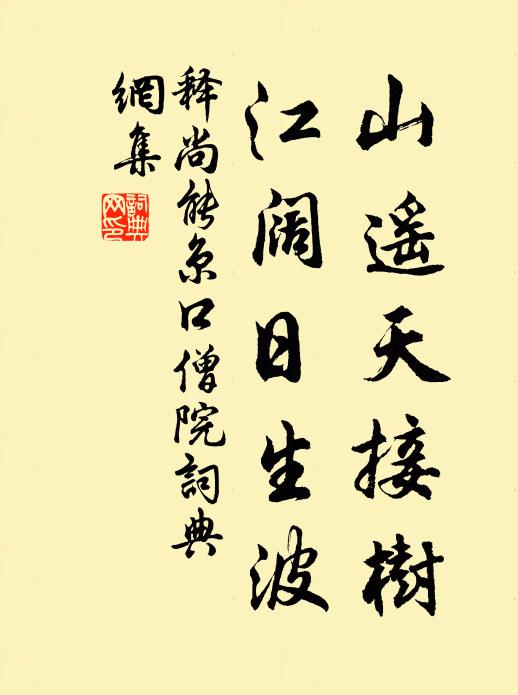 山遥天接樹
江阔日生波
释尚能京口僧院詞典
網集
詞典
网印